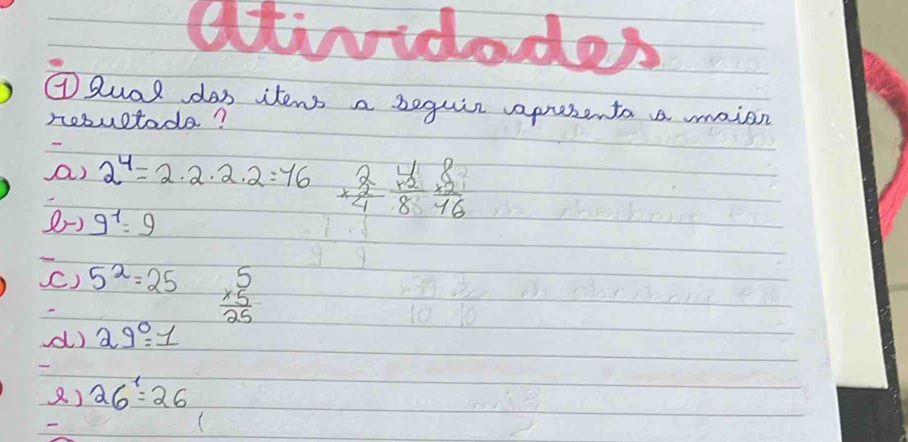 atividades
① Qual dos itens a seguir apresenta a maior
resultado?
a) 2⁴ = 2.2.2.2 = 16   2 × 2 = 4   4 × 2 = 8   8 × 2 = 16
b) 9¹ = 9
c) 5² = 25   5 × 5 = 25
d) 29⁰ = 1
e) 26¹ = 26